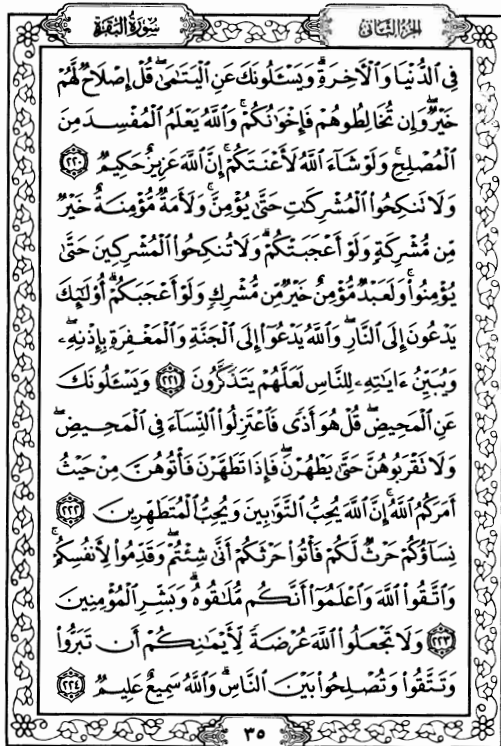 سُورَةُ البَقَرَةِ
الجُزْءُ الثَّانِي
فِي الدُّنْيَا وَالْآخِرَةِ ۗ وَيَسْـَٔلُونَكَ عَنِ الْيَتَـٰمَىٰ ۖ قُلْ إِصْلَاحٌ لَّهُمْ
خَيْرٌ ۖ وَإِن تُخَالِطُوهُمْ فَإِخْوَٰنُكُمْ ۚ وَاللَّهُ يَعْلَمُ الْمُفْسِدَ مِنَ
الْمُصْلِحِ ۚ وَلَوْ شَآءَ اللَّهُ لَأَعْنَتَكُمْ ۚ إِنَّ اللَّهَ عَزِيزٌ حَكِيمٌ ٢٢٠
وَلَا تَنكِحُوا۟ الْمُشْرِكَـٰتِ حَتَّىٰ يُؤْمِنَّ ۚ وَلَأَمَةٌ مُّؤْمِنَةٌ خَيْرٌ
مِّن مُّشْرِكَةٍ وَلَوْ أَعْجَبَتْكُمْ ۗ وَلَا تُنكِحُوا۟ الْمُشْرِكِينَ حَتَّىٰ
يُؤْمِنُوا۟ ۚ وَلَعَبْدٌ مُّؤْمِنٌ خَيْرٌ مِّن مُّشْرِكٍ وَلَوْ أَعْجَبَكُمْ ۗ أُو۟لَـٰٓئِكَ
يَدْعُونَ إِلَى النَّارِ ۖ وَاللَّهُ يَدْعُوٓا۟ إِلَى الْجَنَّةِ وَالْمَغْفِرَةِ بِإِذْنِهِۦ ۖ
وَيُبَيِّنُ ءَايَـٰتِهِۦ لِلنَّاسِ لَعَلَّهُمْ يَتَذَكَّرُونَ ٢٢١ وَيَسْـَٔلُونَكَ
عَنِ الْمَحِيضِ ۖ قُلْ هُوَ أَذًى فَاعْتَزِلُوا۟ النِّسَآءَ فِي الْمَحِيضِ ۖ
وَلَا تَقْرَبُوهُنَّ حَتَّىٰ يَطْهُرْنَ ۖ فَإِذَا تَطَهَّرْنَ فَأْتُوهُنَّ مِنْ حَيْثُ
أَمَرَكُمُ اللَّهُ ۚ إِنَّ اللَّهَ يُحِبُّ التَّوَّٰبِينَ وَيُحِبُّ الْمُتَطَهِّرِينَ ٢٢٢
نِسَآؤُكُمْ حَرْثٌ لَّكُمْ فَأْتُوا۟ حَرْثَكُمْ أَنَّىٰ شِئْتُمْ ۖ وَقَدِّمُوا۟ لِأَنفُسِكُمْ ۚ
وَاتَّقُوا۟ اللَّهَ وَاعْلَمُوٓا۟ أَنَّكُم مُّلَـٰقُوهُ ۗ وَبَشِّرِ الْمُؤْمِنِينَ
٢٢٣ وَلَا تَجْعَلُوا۟ اللَّهَ عُرْضَةً لِّأَيْمَـٰنِكُمْ أَن تَبَرُّوا۟
وَتَتَّقُوا۟ وَتُصْلِحُوا۟ بَيْنَ النَّاسِ ۗ وَاللَّهُ سَمِيعٌ عَلِيمٌ ٢٢٤
٣٥